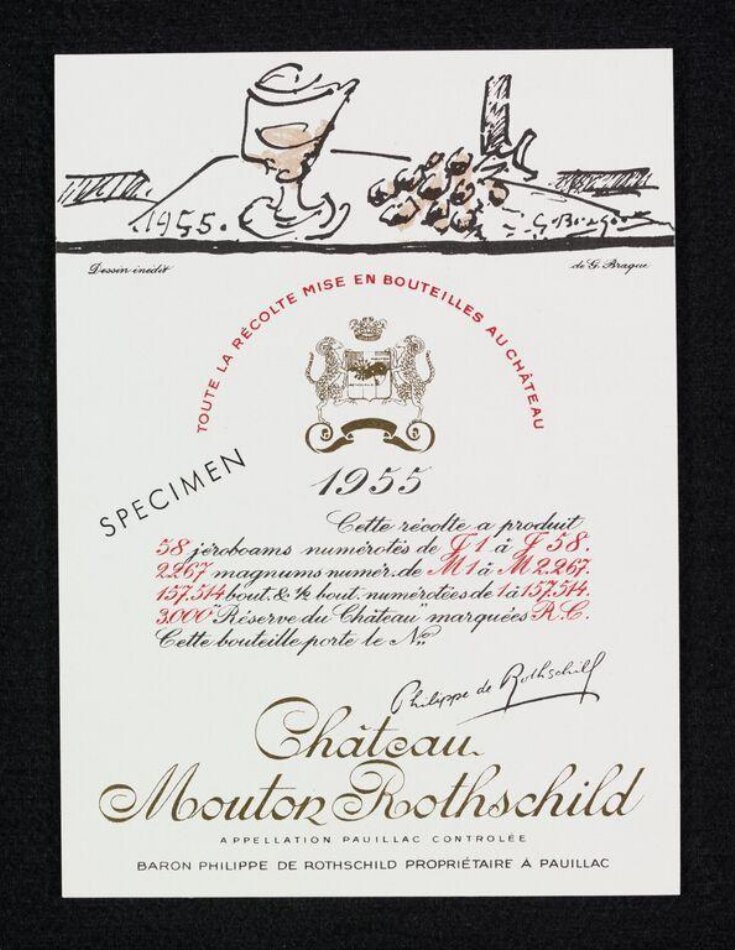 1955.
Dessin inedit
de G. Braque
TOUTE LA RÉCOLTE MISE EN BOUTEILLES AU CHÂTEAU
SPECIMEN
1955
Cette récolte a produit
58 jéroboams numérotés de J 1 à J 58.
2.267 magnums numér. de M 1 à M 2.267.
157.514 bout. & ½ bout. numérotées de 1 à 157.514.
3.000 "Réserve du Château" marquées R.C.
Cette bouteille porte le No
Philippe de Rothschild
Château
Mouton Rothschild
APPELLATION PAUILLAC CONTROLÉE
BARON PHILIPPE DE ROTHSCHILD PROPRIÉTAIRE À PAUILLAC